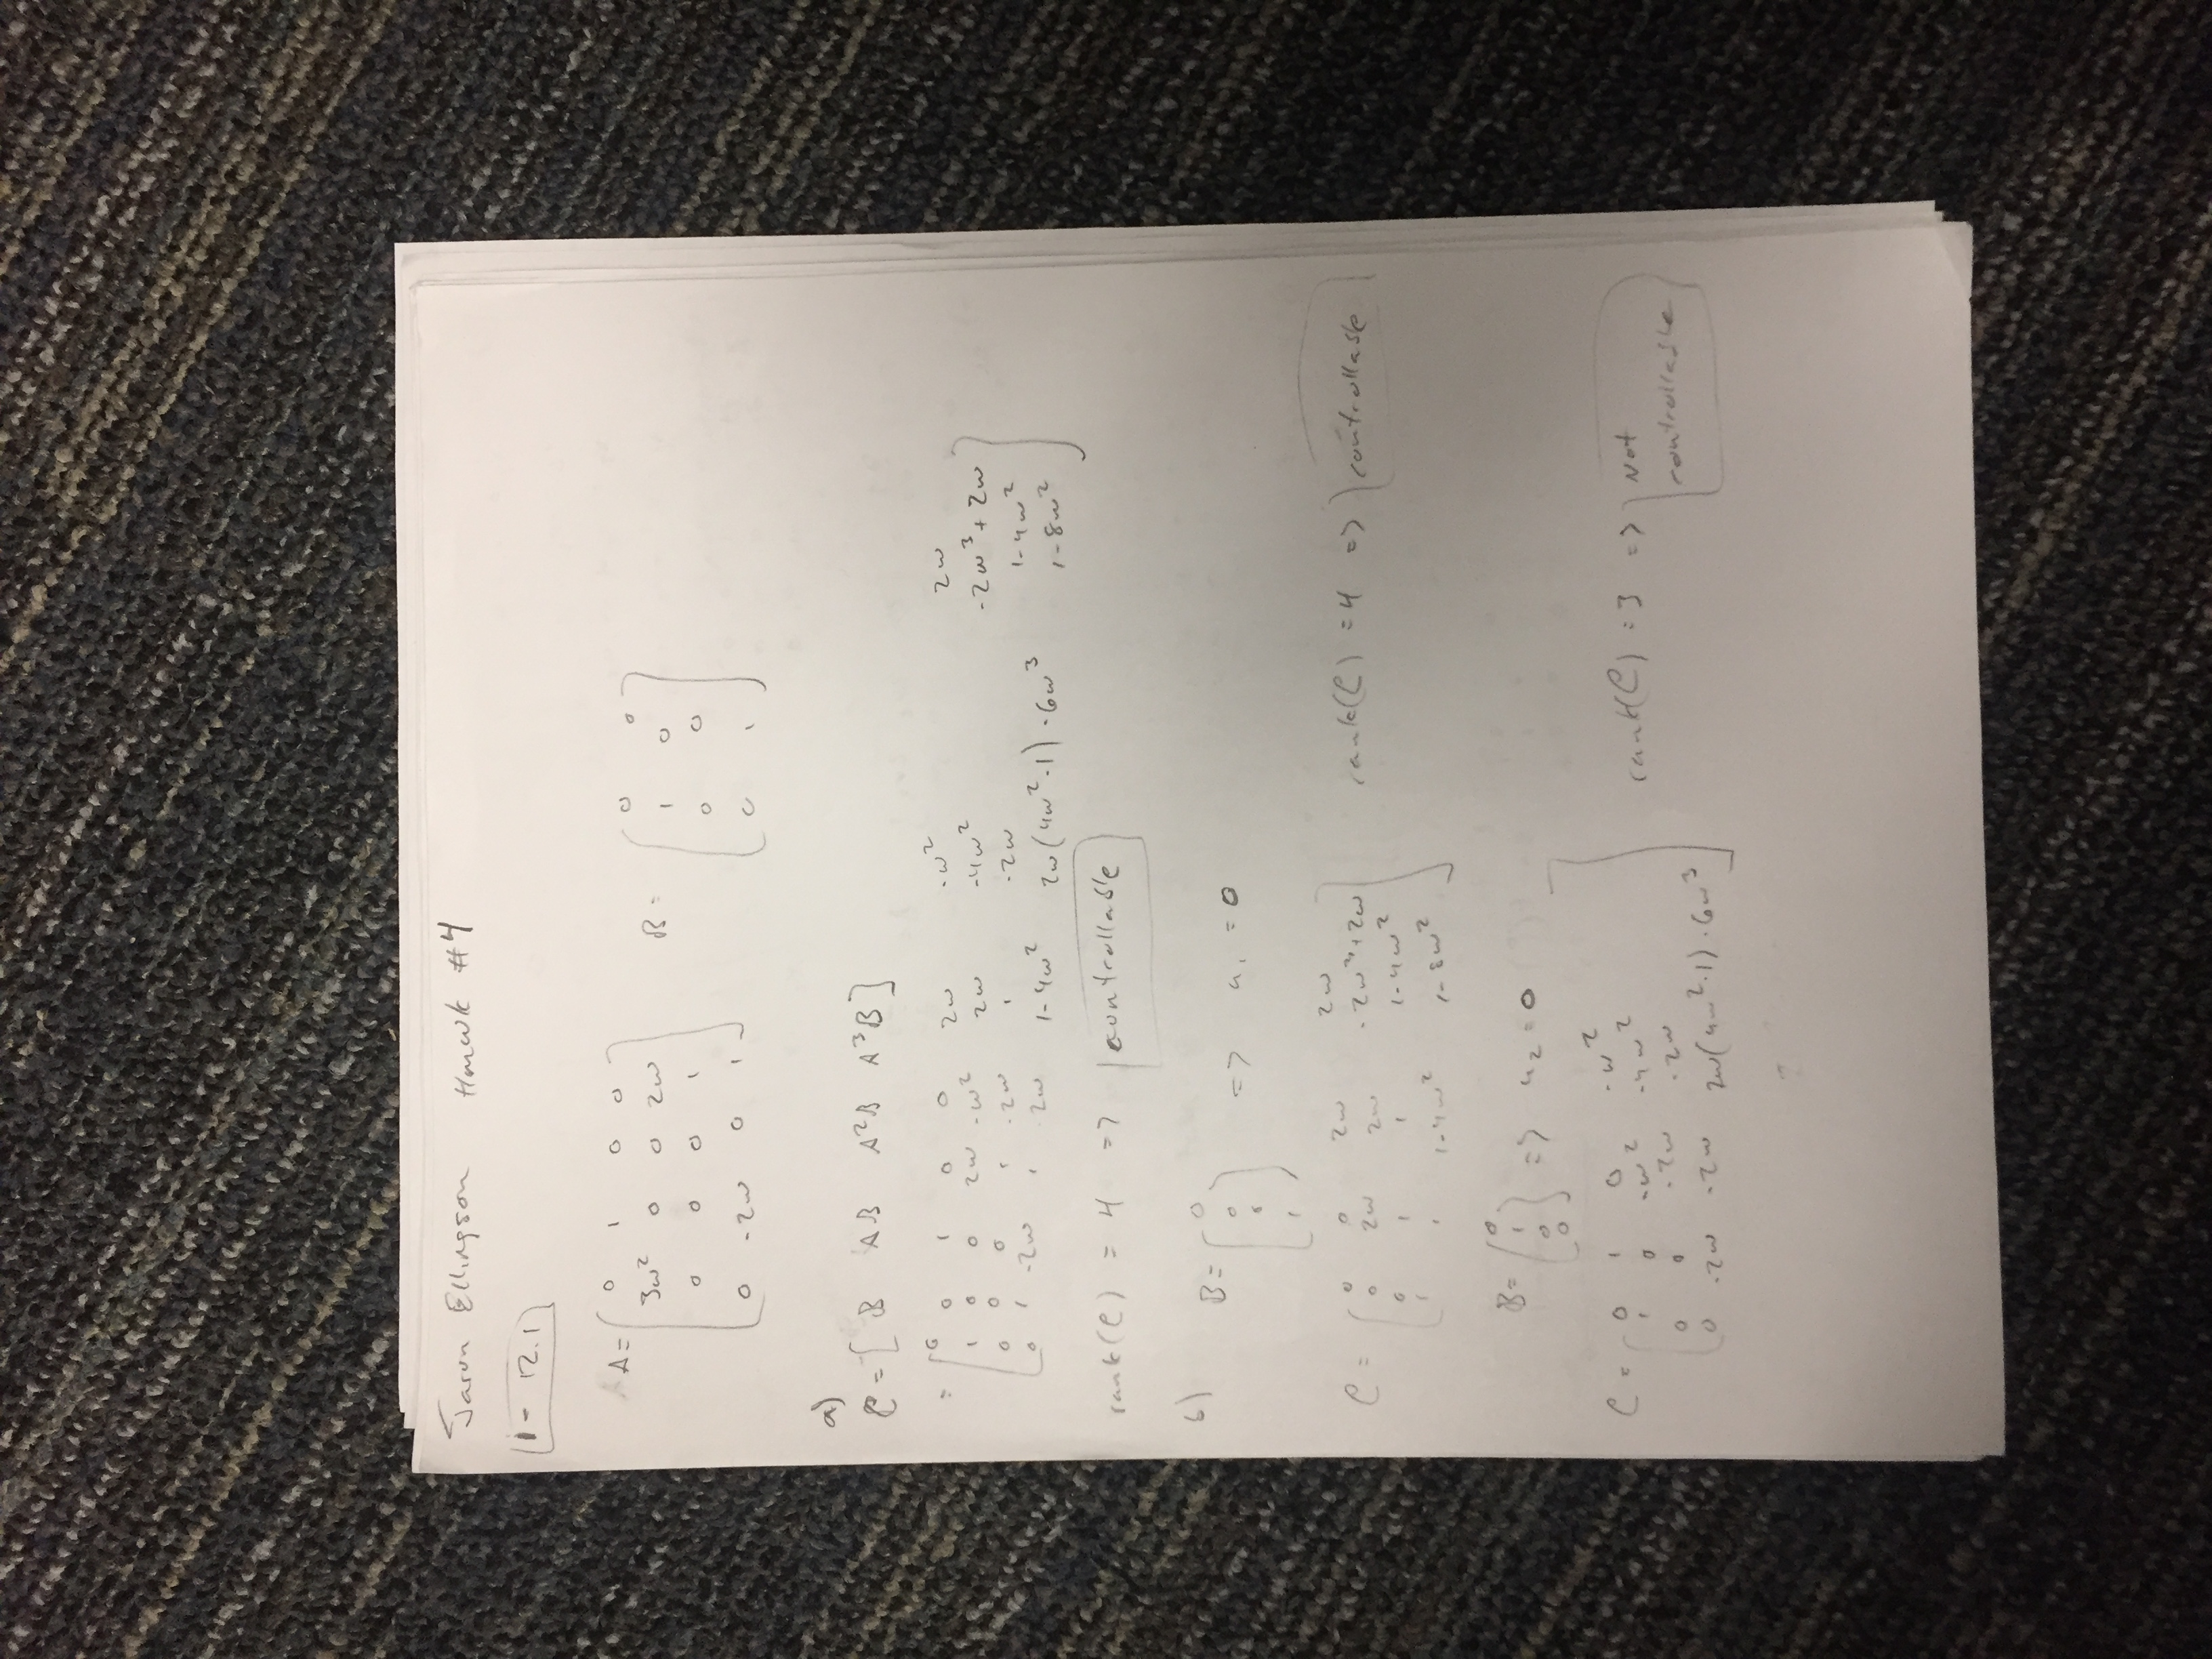 Jaron Ellingson Hmwk #4
1 - 12.1
A = [ 0 1 0 0
3w² 0 0 2w
0 0 0 1
0 -2w 0 1 ]
B = [ 0 0
1 0
0 0
0 1 ]
a)
C = [ B AB A²B A³B ]
= [ 0 0 1 0 0 2w -w² 2w
1 0 0 2w -w² 2w -4w² -2w³+2w
0 0 0 1 -2w 1 -2w 1-4w²
0 1 -2w 1 -2w 1-4w² 2w(4w²-1)-6w³ 1-8w² ]
rank(C) = 4 => controllable
b)
B = [ 0
0
0
1 ] => u₁ = 0
C = [ 0 0 2w 2w
0 2w 2w -2w³+2w
0 1 1 1-4w²
1 1 1-4w² 1-8w² ]
rank(C) = 4 => controllable
B = [ 0
1
0
0 ] => u₂ = 0
C = [ 0 1 0 -w²
1 0 -w² -4w²
0 0 -2w -2w
0 -2w -2w 2w(4w²-1)-6w³ ]
rank(C) = 3 => Not
controllable